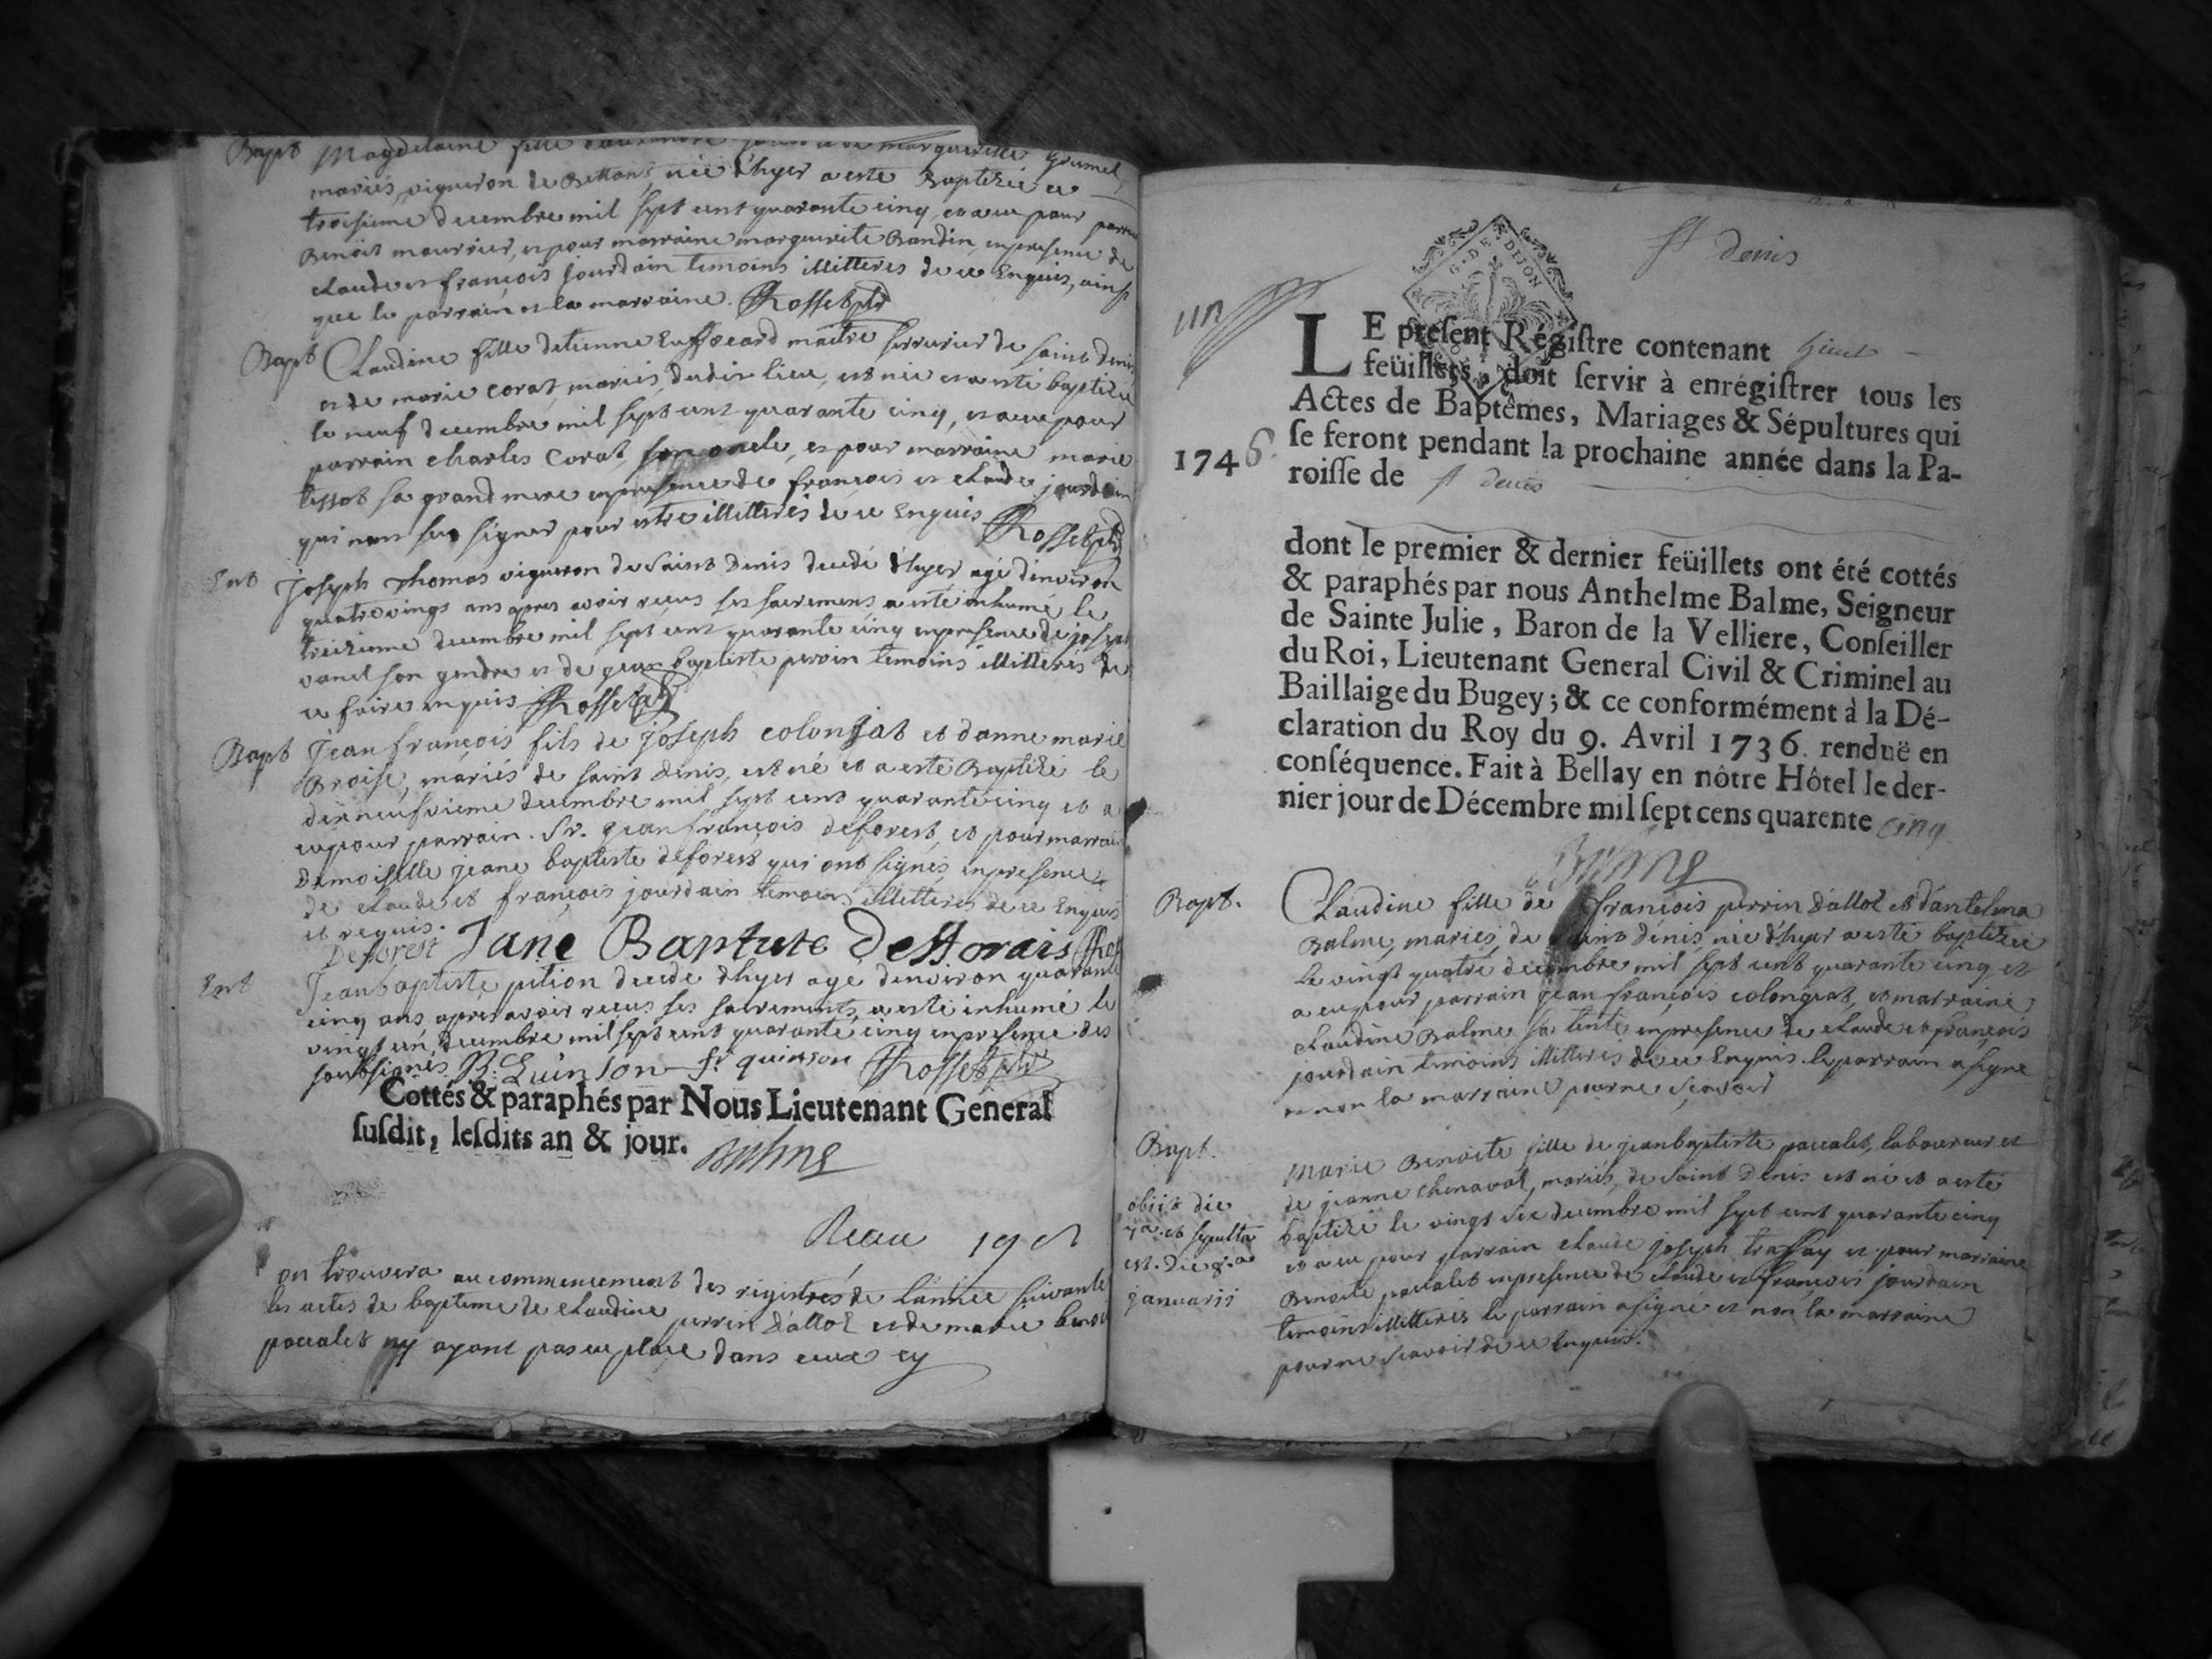 Bapt Magdelaine fille margueritte Grumel
mariés, vigneron de Bettans, née d'hyer a esté Baptizée ce
troisieme decembre mil sept cent quarante cinq, et a eu pour parrain
Benoit mourrier, et pour marraine marguerite Bandin, en presence de
claude et françois jourdain temoins illitteres de ce Enquis, ainsi
que le parrain et la marraine. Rosset ptre
Bapt Claudine fille detienne maitre serrurier de saint denis
et de marie corat, mariés, dudit lieu, est née et a esté baptizée
le neuf decembre mil sept cent quarante cinq, et a eu pour
parrain charles Corat, son oncle, et pour marraine marie
tissot sa grand mere en presence de françois et claude jourdain
qui n'ont sçu signer pour estre illitteres de ce Enquis Rosset ptre
Ent Joseph Thomas vigneron de Saint Denis decedé d'hyer agé d'environ
quatrevings ans apres avoir reçus ses sacremens a esté inhumé le
treizieme decembre mil sept cent quarante cinq en presence de joseph
vanel son gendre et de jean baptiste perrin temoins illitteres de
ce faire enquis Rosset ptre
Bapt Jean françois fils de joseph colonjat et d'anne marie
Broise, mariés de saint denis, est né et a esté Baptizé le
dixneufvieme decembre mil sept cent quarante cinq et a
eu pour parrain. Sr. jean françois deforest, et pour marraine
Demoiselle jeane baptiste deforest qui ont signés, en presence
de claude et françois jourdain temoins illitteres de ce Enquis
et requis.
Deforest Jane Baptiste Defforais
Ent Jean baptiste pition decedé d'hyer agé d'environ quarante
cinq ans apres avoir reçus ses sacrements, a esté inhumé le
vingt un, decembre mil sept cent quarante cinq en presence des
soubsignés B. Quinson fr quinson Rosset ptre
Cottés & paraphés par Nous Lieutenant General
susdit, lesdits an & jour. Balme
on trouvera au commencement des registres de l'année suivante
les actes de bapteme de claudine perrin d'alloz et de marie benoite
paccalet ny ayant pas eu place dans ceux cy
st denis
G. DE DIJON
LE present Régistre contenant huit
feüillets, doit servir à enrégistrer tous les
Actes de Baptêmes, Mariages & Sépultures qui
se feront pendant la prochaine année dans la Pa-
1746. roisse de st denis
dont le premier & dernier feüillets ont été cottés
& paraphés par nous Anthelme Balme, Seigneur
de Sainte Julie, Baron de la Velliere, Conseiller
du Roi, Lieutenant General Civil & Criminel au
Baillaige du Bugey; & ce conformément à la Dé-
claration du Roy du 9. Avril 1736. renduë en
conséquence. Fait à Bellay en nôtre Hôtel le der-
nier jour de Décembre mil sept cens quarente cinq
Balme
Bapt. Claudine fille de françois perrin d'alloz et d'antelma
Balme, mariés, de saint denis, née d'hyer a esté baptizée
le vingt quatre decembre mil sept cent quarante cinq et
a eu pour parrain jean françois colongeat, et marraine
claudine Balme sa tente en presence de claude et françois
jourdain temoins illitteres de ce Enquis le parrain a signe
et non la marraine pour ne sçavoir
Bapt. Marie Benoite fille de jeanbaptiste paccalet, laboureur et
de jeanne chenaval, mariés, de saint Denis est né et a esté
baptizé le vingt six decembre mil sept cent quarante cinq
et a eu pour parrain claude joseph trassay et pour marraine
Benoite paccalet en presence de claude et françois jourdain
temoins illitteres le parrain a signé et non la marraine
pour ne sçavoir de ce enquis.
obiit die
7a. et sepulta
est. die 8.a
januarii